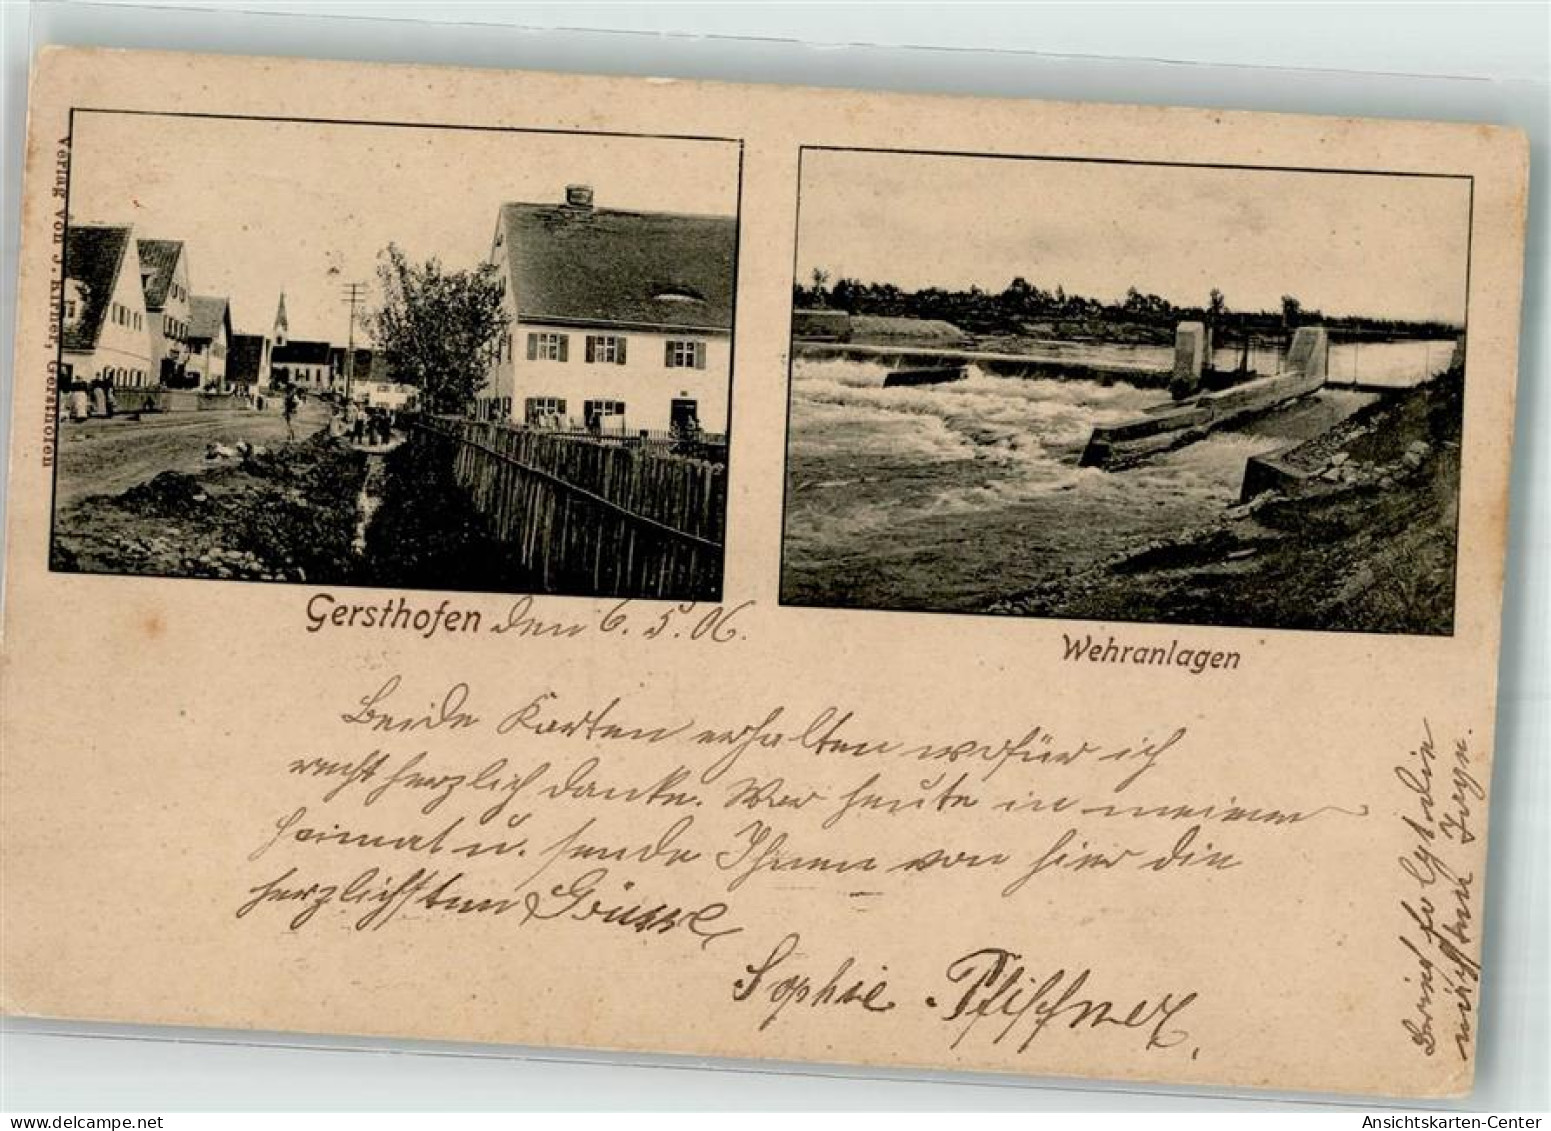 Verlag von J. Kirner, Gersthofen
Gersthofen den 6. 5. 06.
Wehranlagen
Beide Karten erhalten wofür ich
recht herzlich danke. War heute in meiner
Heimat u. sende Ihnen von hier die
herzlichsten Grüsse
Sophie Pfischner.
Brief folgt die
nächsten Tagen.
Ansichtskarten-Center